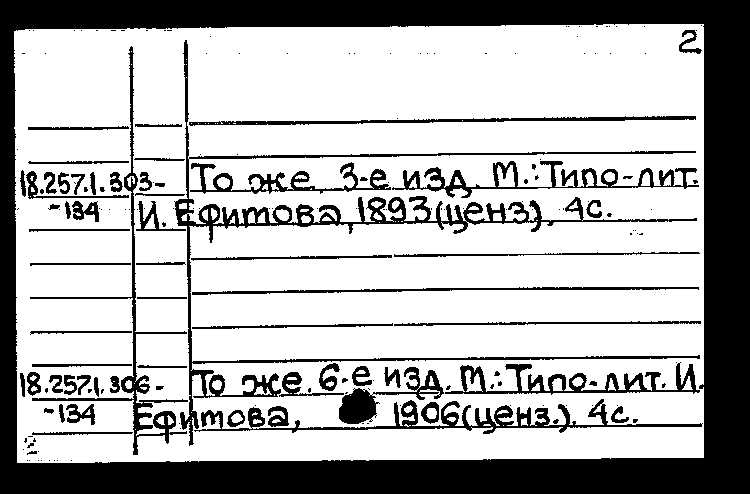 2
18.257.1.303- То же. 3-е изд. М.: Типо-лит.
-134 И. Ефитова, 1893(ценз). 4с.
18.257.1.306- То же. 6-е изд. М.: Типо-лит. И.
-134 Ефитова, 1906(ценз.). 4с.